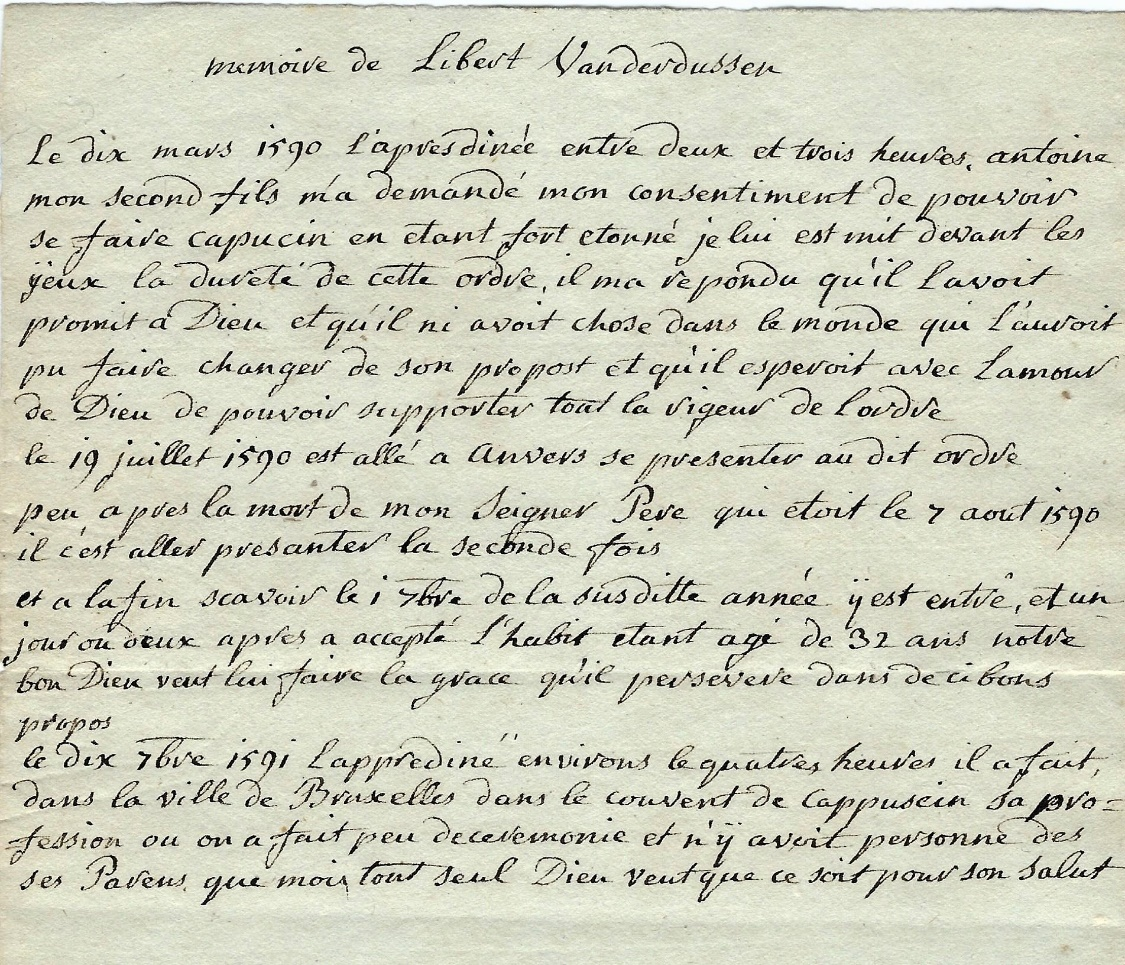 memoire de Libert Vanderdussen
Le dix mars 1590 l'apresdinée entre deux et trois heures. antoine
mon second fils m'a demandé mon consentiment de pouvoir
se faire capucin en etant fort etonné je lui est mit devant les
ÿeux la dureté de cette ordre, il ma repondu qu'il lavoit
promit a Dieu et qu'il ni avoit chose dans le monde qui l'auroit
pu faire changer de son propost et qu'il esperoit avec Lamour
de Dieu de pouvoir supporter tout la rigeur de lordre
le 19 juillet 1590 est allé a Anvers se presenter au dit ordre
peu apres la mort de mon Seigner Pere qui etoit le 7 aout 1590
il c'est aller presanter la seconde fois
et a la fin scavoir le 1 7bre de la susditte année ÿ est entré, et un
jour ou deux apres a accepté l'habit etant agé de 32 ans notre
bon Dieu veut lui faire la grace qu'il persevere dans de ci bons
propos
le dix 7bre 1591 Lapprediné environs le quatres heures il a fait,
dans la ville de Bruxelles dans le couvent de Cappusein sa pro=
fession ou on a fait peu de ceremonie et n'ÿ avoit personne des
ses Parens que moi tout seul Dieu veut que ce soit pour son salut